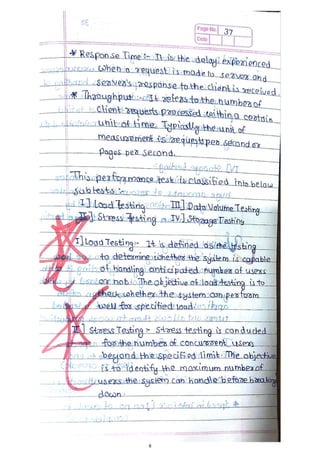 Page No. 37
Date
* Response Time :- It is the delay experienced
when a request is made to server and
server's response to the client is received.
* Throughput :- It refers to the number of
client requests processed within a certain
unit of time. Typically the unit of
measurement is request per second or
pages per second.
This performance test is classified into below
subtests :-
I] Load Testing III] Data Volume Testing
II] Stress Testing IV] Storage Testing
I] Load Testing :- It is defined as the testing
to determine whether the system is capable
of handling anticipated number of users
or not. The objective of load testing is to
check whether the system can perform
well for specified load.
II] Stress Testing :- Stress testing is conduded
for the number of concurrent users
beyond the specified limit. The objective
is to identify the maximum number of
users the system can handle before breaking
down.